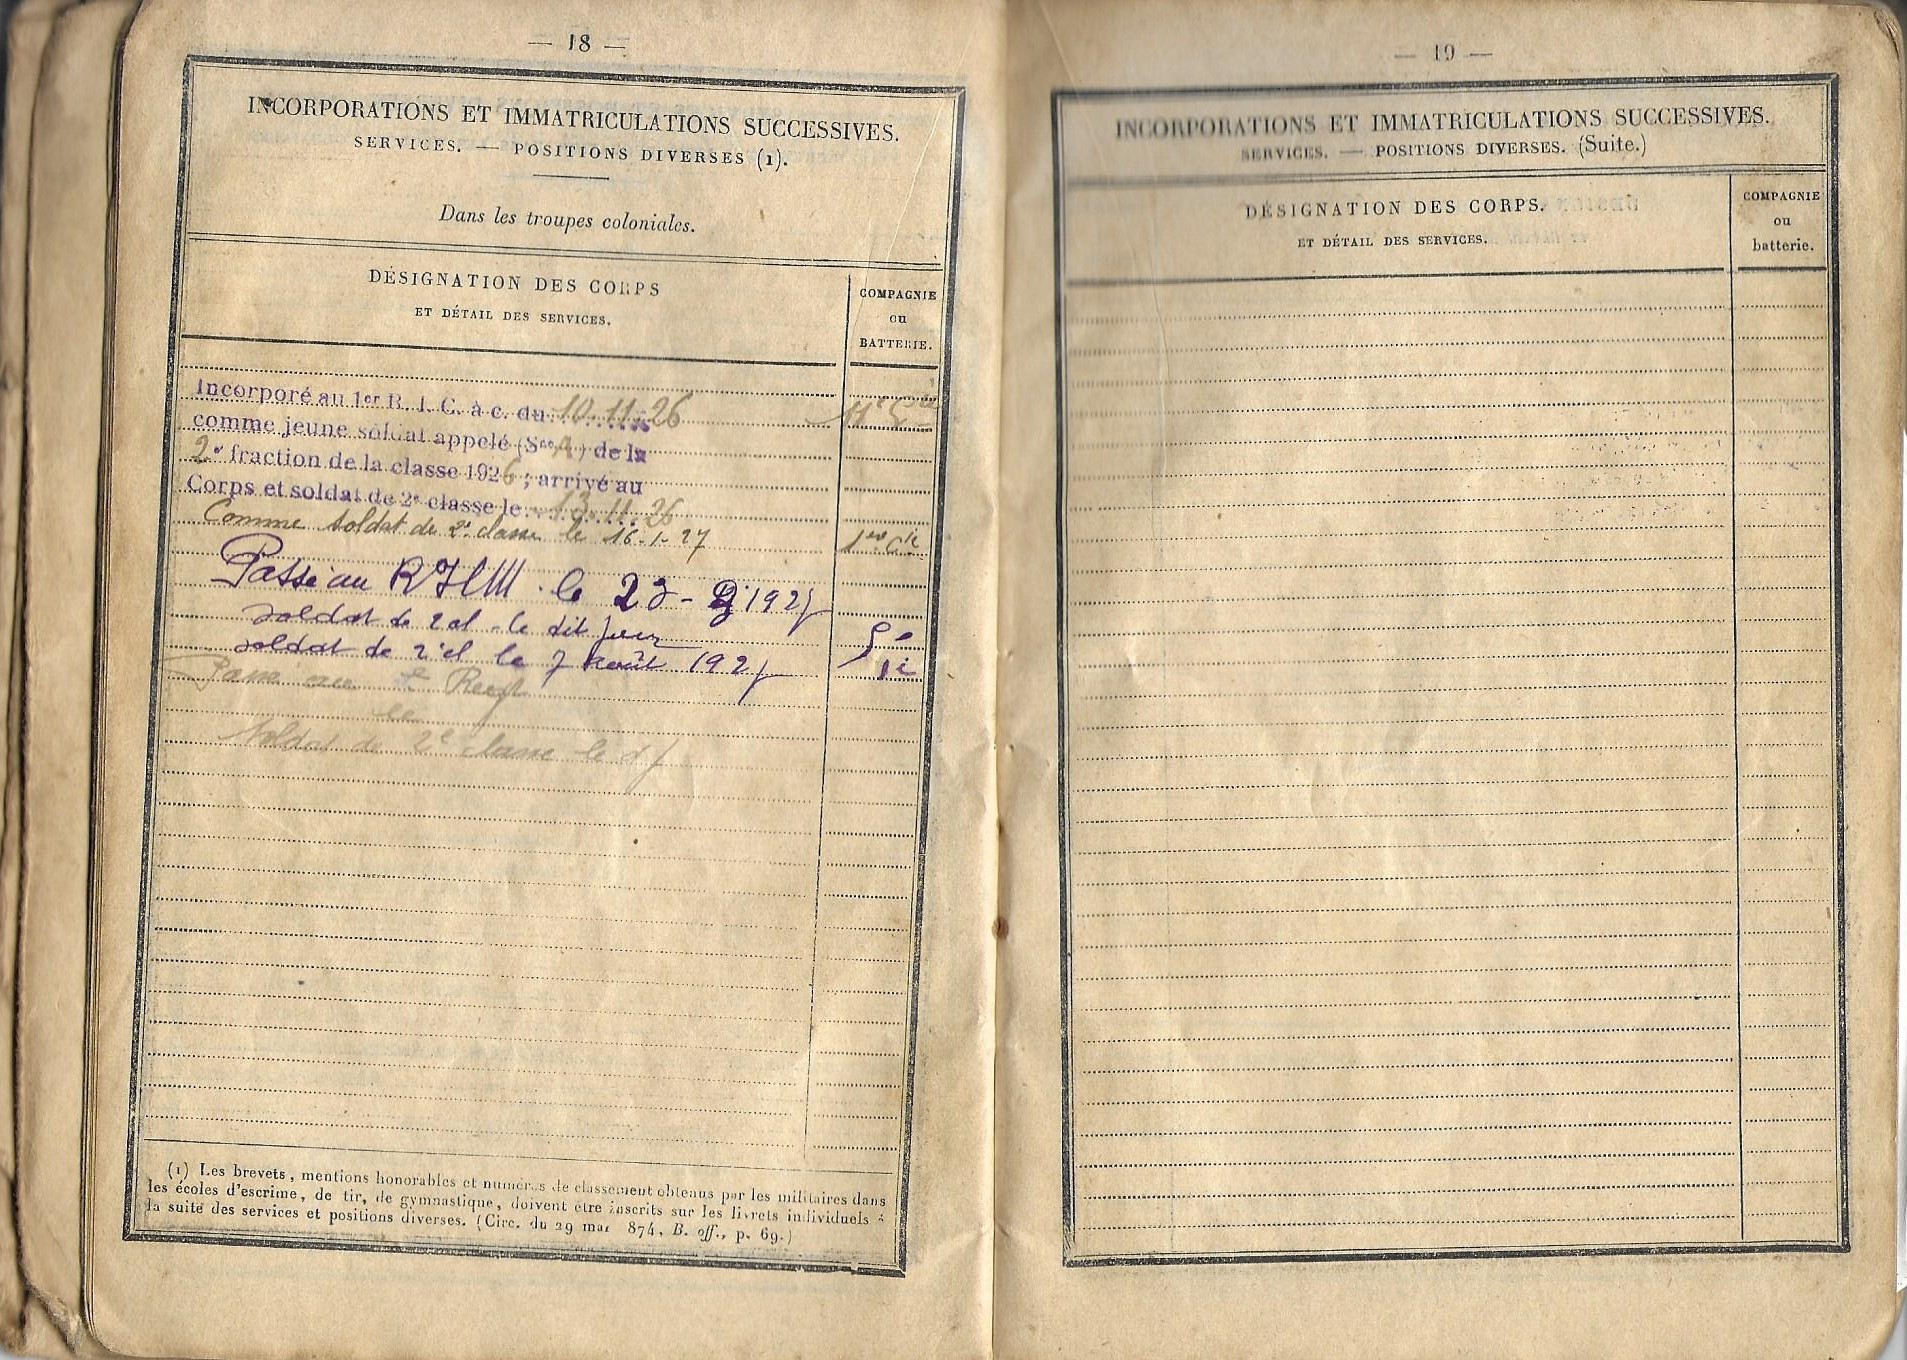 — 18 —
INCORPORATIONS ET IMMATRICULATIONS SUCCESSIVES.
SERVICES. — POSITIONS DIVERSES (1).
Dans les troupes coloniales.
DÉSIGNATION DES CORPS
ET DÉTAIL DES SERVICES.
COMPAGNIE
ou
BATTERIE.
Incorporé au 1er R. I. C. à c. du 10.11.26 11e Cie
comme jeune soldat appelé (Son A) de la
2e fraction de la classe 1926; arrivé au
Corps et soldat de 2e classe le 13.11.26
Comme soldat de 2e classe le 16-1-27 1ere Cie
Passé au RICM le 23-2 1927
soldat de 2 cl le dit jour
soldat de 2e cl le 7 août 1927
Passé au Regt
le
Soldat de 2e classe le d j
(1) Les brevets, mentions honorables et numéros de classement obtenus par les militaires dans
les écoles d'escrime, de tir, de gymnastique, doivent être inscrits sur les livrets individuels à
la suite des services et positions diverses. (Circ. du 29 mai 874, B. off., p. 69.)
— 19 —
INCORPORATIONS ET IMMATRICULATIONS SUCCESSIVES.
SERVICES. — POSITIONS DIVERSES. (Suite.)
DÉSIGNATION DES CORPS.
ET DÉTAIL DES SERVICES.
COMPAGNIE
ou
batterie.